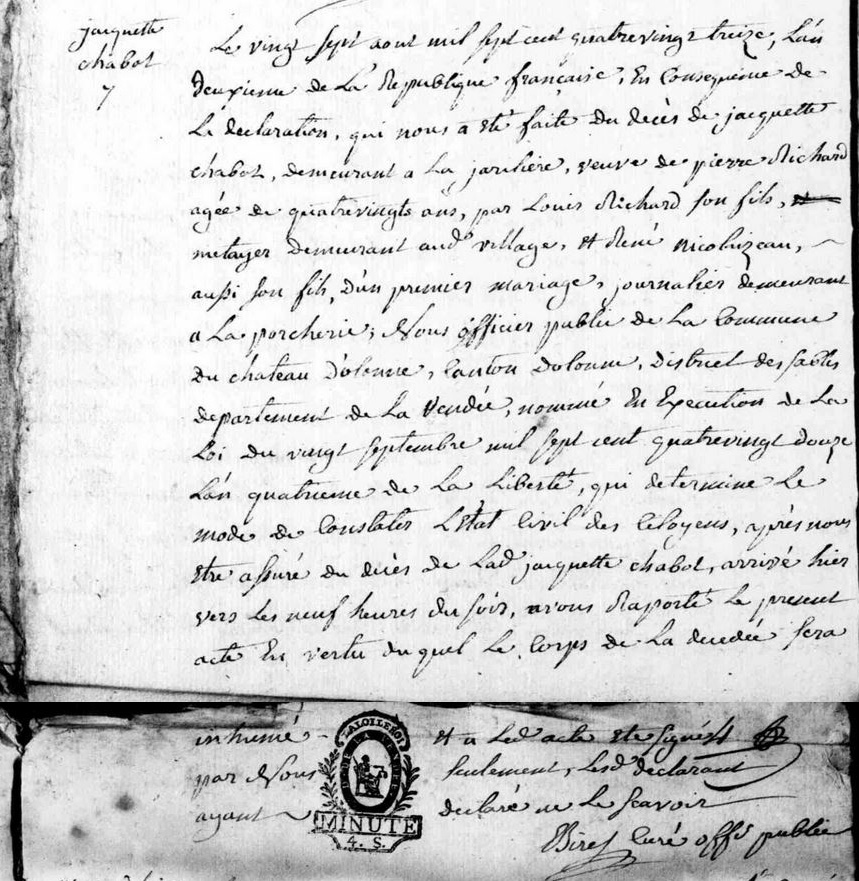 jacquette
chabot
7
Le vingt sept aout mil sept cent quatrevingt treize, L'an
deuxieme de La Republique française, En Consequence de
La declaration, qui nous a été faite du decès de jacquette
chabot, demeurant a La jariliere, veuve de pierre Richard
agée de quatrevingts ans, par Louis Richard son fils,
metayer demeurant aud village, et René Nicolaizeau,
aussi son fils, d'un premier mariage, journalier demeurant
a La porcherie; Nous officier public de La Commune
du chateau d'olonne, Canton d'olonne, District des sables
departement de La Vendée, nommé En Execution de La
Loi du vingt septembre mil sept cent quatrevingt douze
L'an quatrieme de La Liberté, qui determine Le
mode de Constater L'Etat Civil des Citoyens, après nous
etre assuré du decès de Lad jacquette chabot, arrivé hier
vers Les neuf heures du soir, avons Raporté Le present
acte En vertu duquel Le Corps de La decedée sera
inhumé - et a Led acte eté signé
par Nous seulement, Lesd declarant
ayant declaré ne Le scavoir
LA LOI LE ROI
MINUTE
4. S.
curé offr public